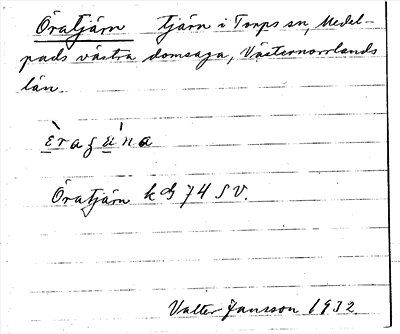 Öratjärn tjärn i Torps sn, Medel-
pads västra domsaga, Västernorrlands
län.
Öratjärn kbl 74 SV.
Valter Jansson 1932